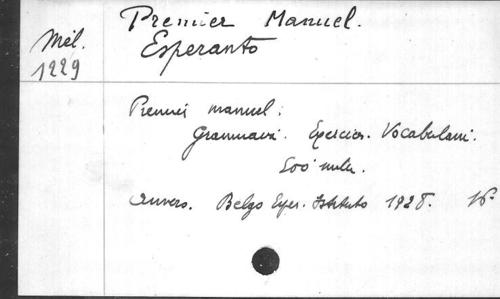 Premier Manuel.
Esperanto
Mél.
1229
Premier manuel:
Grammaire. Exercices. Vocabulaire.
500 mille.
Anvers. Belgo Esper. Istituto 1928. 16°